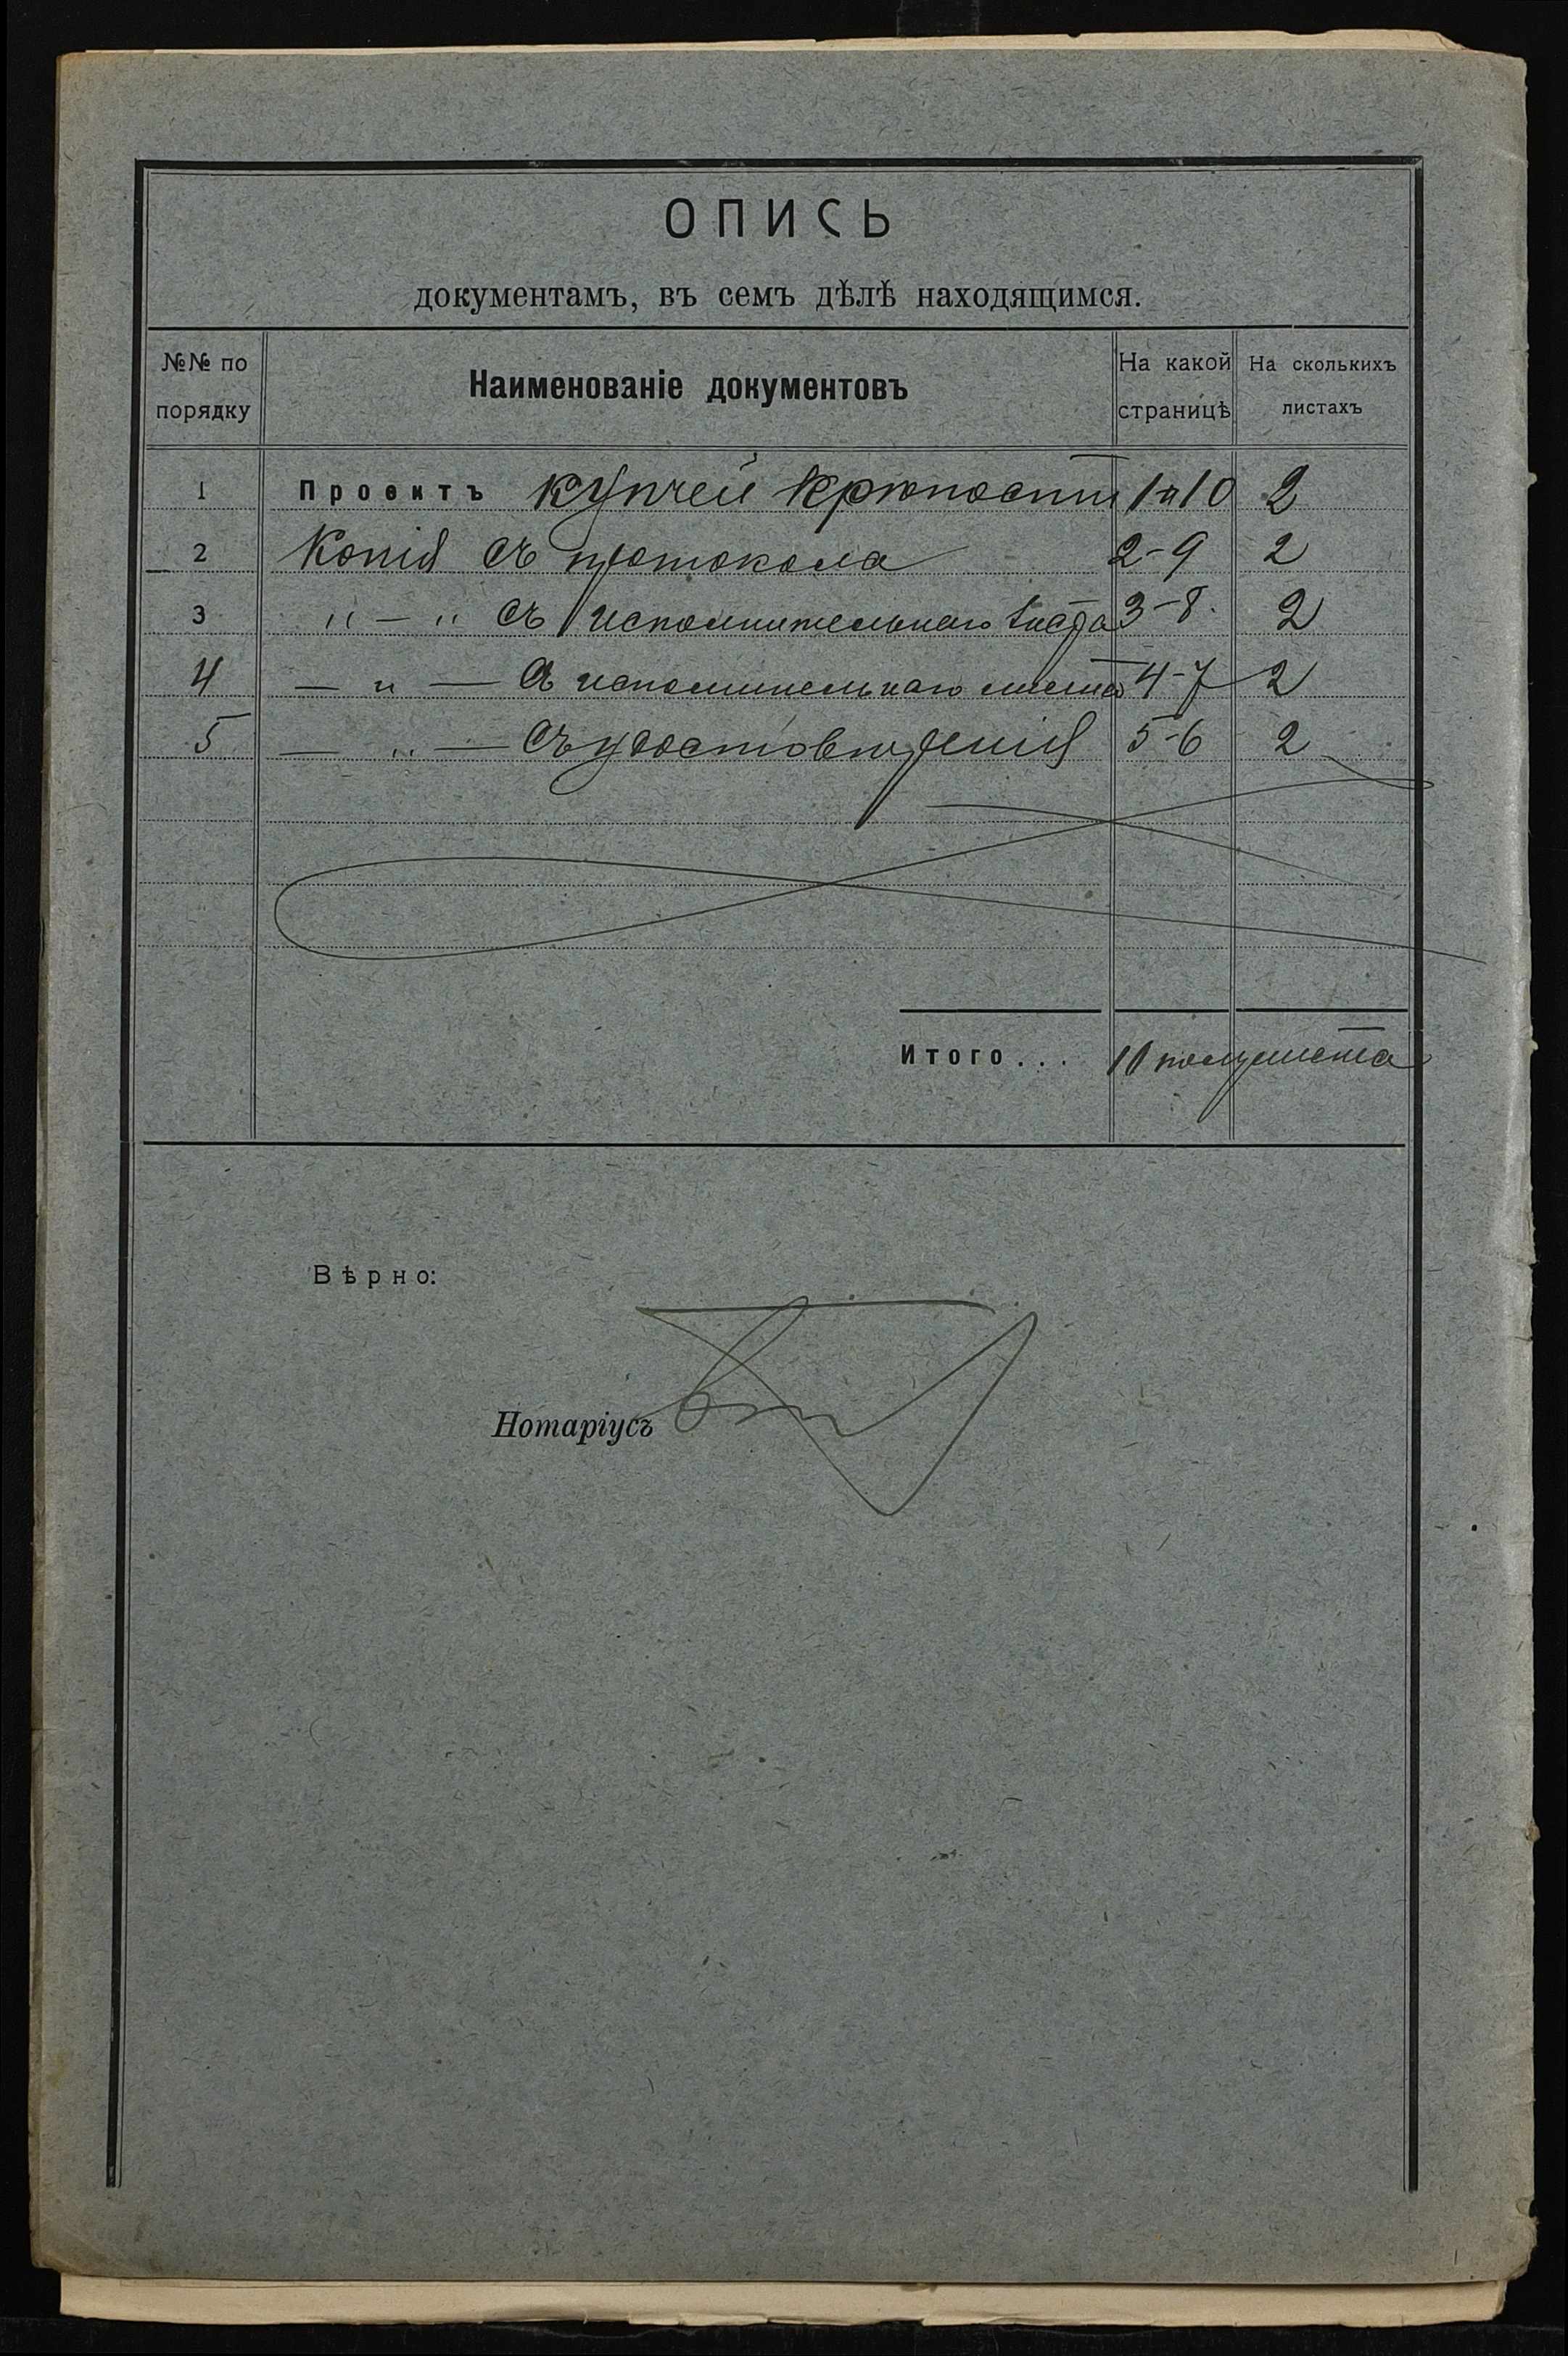 ОПИСЬ
документамъ, въ семъ дѣлѣ находящимся.
№№ по порядку
Наименованіе документовъ
На какой страницѣ
На сколькихъ листахъ
1 Проектъ купчей крѣпости 1 и 10 2
2 Копія съ протокола 2-9 2
3 " — " съ исполнительнаго листа 3-8. 2
4 — " — съ исполнительнаго листа 4-7 2
5 — " — съ удостовѣренія 5-6 2
Итого... 10 полулиста
Вѣрно:
Нотаріусъ